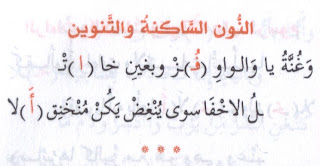 النُّون السَّاكنةُ والتَّنوين
وَغُنَّةُ يا وَالواوِ (فُـ)ـزْ وبغينِ خا (ا) تْـ
ـلُ الاخْفا سوى يُنْغِضْ يَكُنْ مُنْخَنِق (أَ) لا
* * *